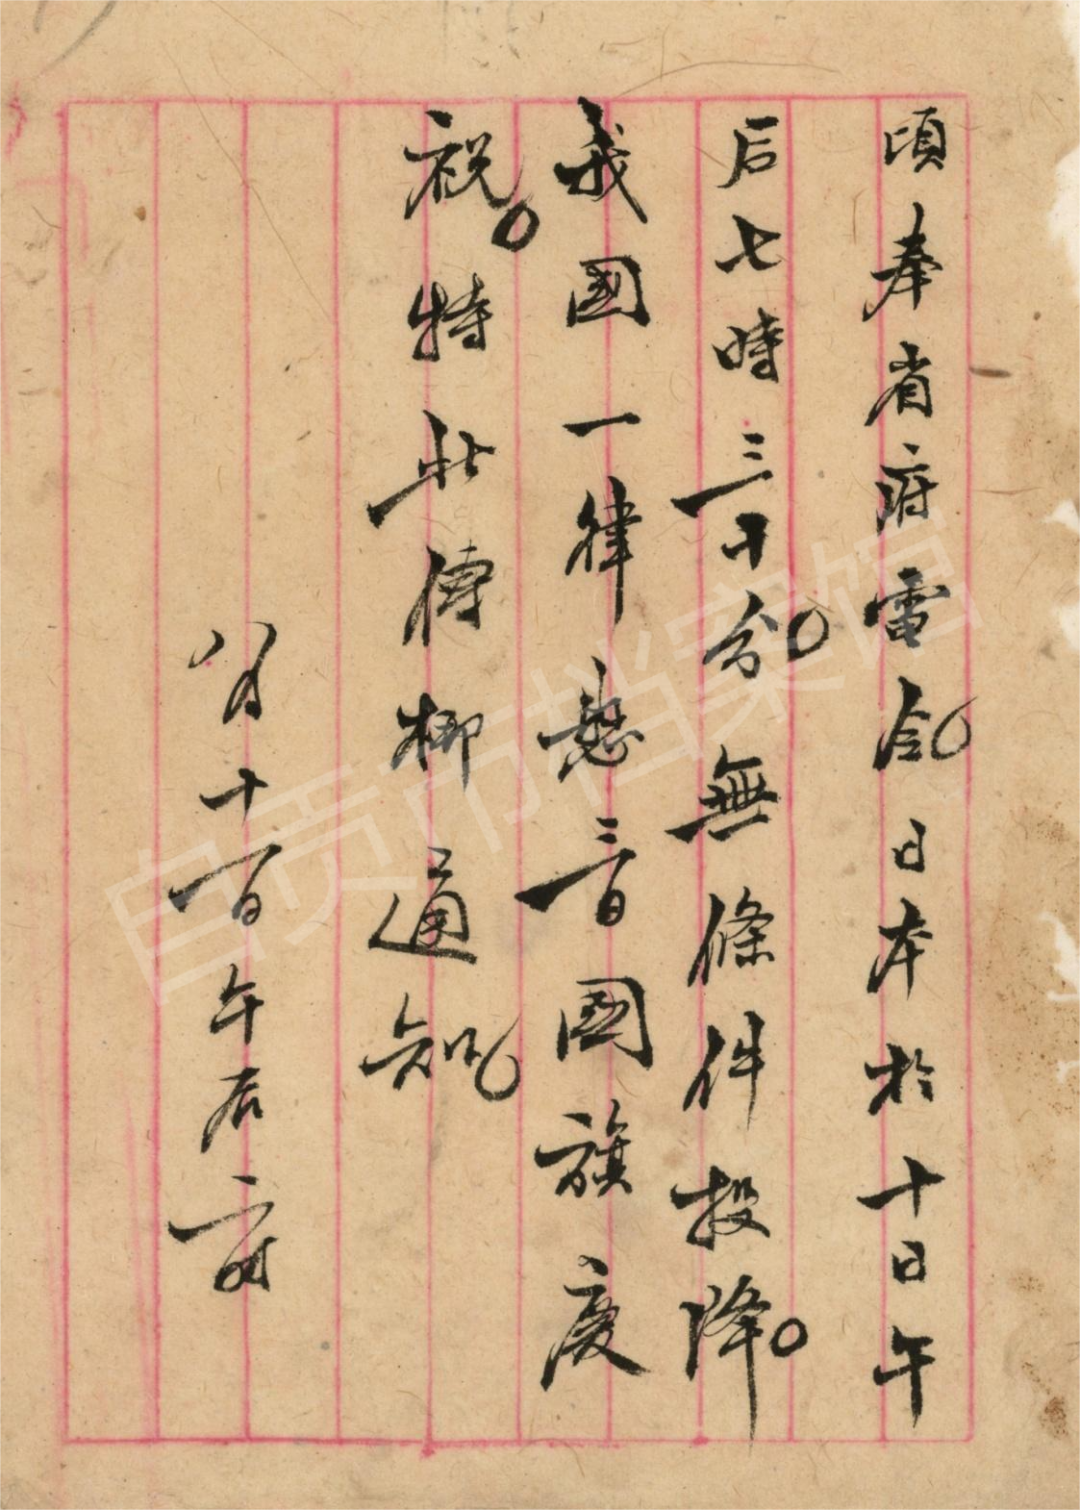 頃奉省府電令。日本於十日午
后七時三十分。無條件投降。
我國一律懸三日國旗慶
祝。特此傳柳通知。
八月十一日午后二时
自贡市档案馆